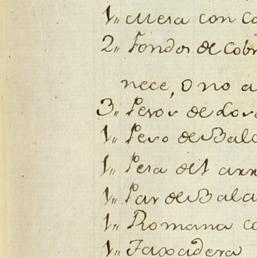 1,, Mesa con Co
2,, Fondos de Cobr
nece, o no a
3,, Pesos de Lor
1,, Peso de Bala
1,, Pesa de 1 arr
1,, Par de Bala
1,, Romana co
1,, Taxadera